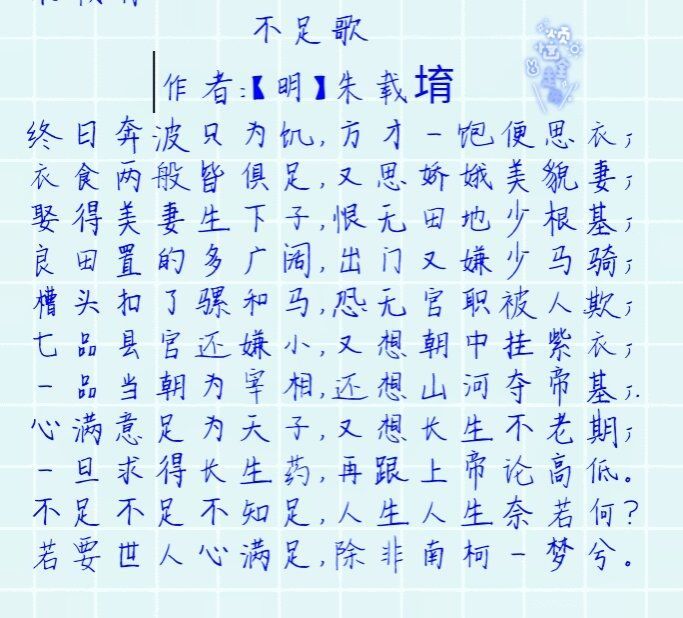 不足歌
作者:【明】朱载堉
终日奔波只为饥,方才一饱便思衣;
衣食两般皆俱足,又思娇娥美貌妻;
娶得美妻生下子,恨无田地少根基;
良田置的多广阔,出门又嫌少马骑;
槽头扣了骡和马,恐无官职被人欺;
七品县官还嫌小,又想朝中挂紫衣;
一品当朝为宰相,还想山河夺帝基;.
心满意足为天子,又想长生不老期;
一旦求得长生药,再跟上帝论高低。
不足不足不知足,人生人生奈若何?
若要世人心满足,除非南柯一梦兮。